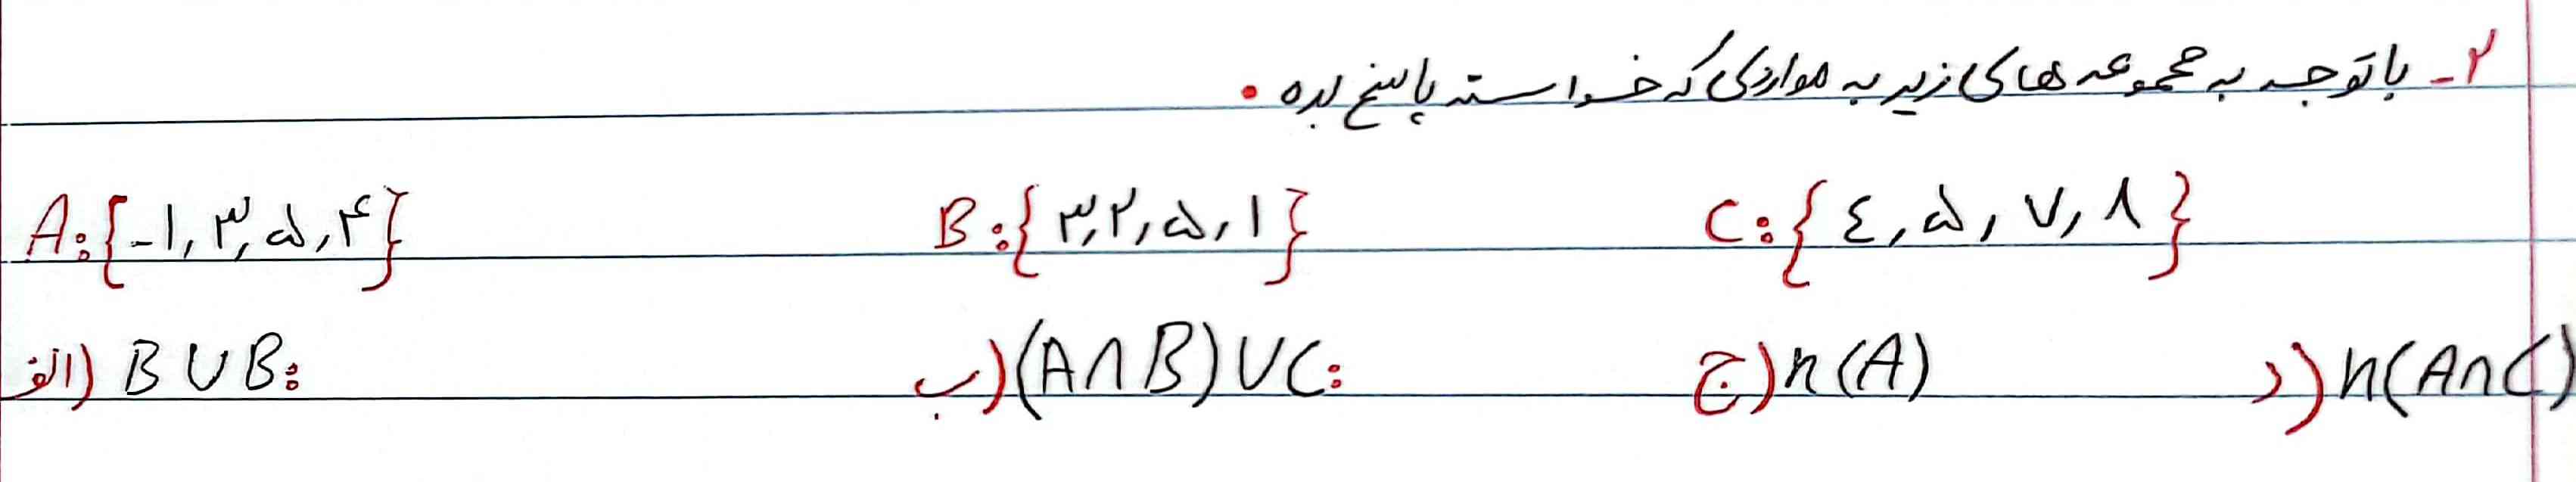 ۲- با توجه به مجموعه های زیر به مواردی که خواسته پاسخ بده .
A:{-۱,۳,۵,۴} B:{۳,۲,۵,۱} C:{٤,۵,۷,۸}
الف) B∪B: ب) (A∩B)∪C: ج) n(A) د) n(A∩C)